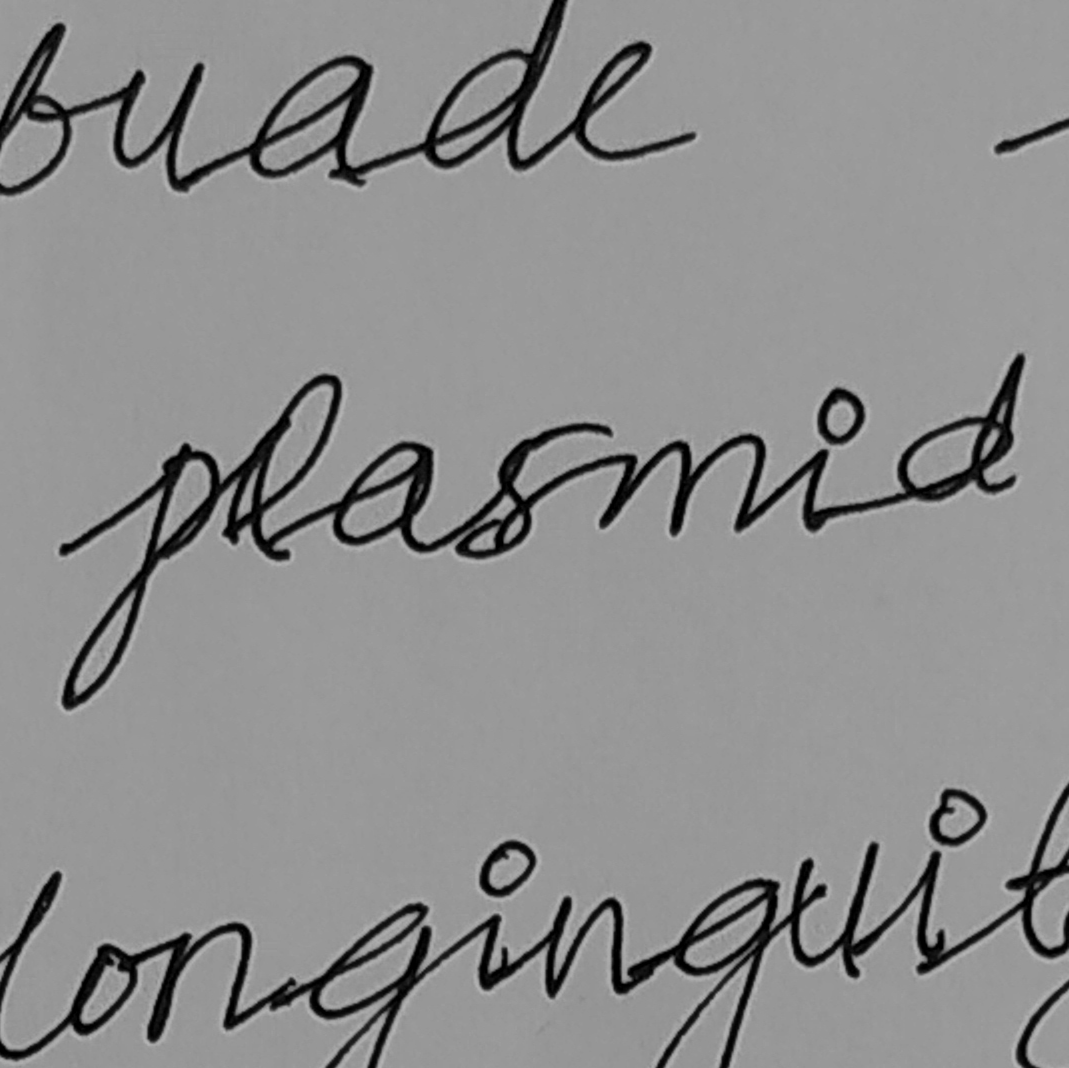 buade
plasmid
longinquit